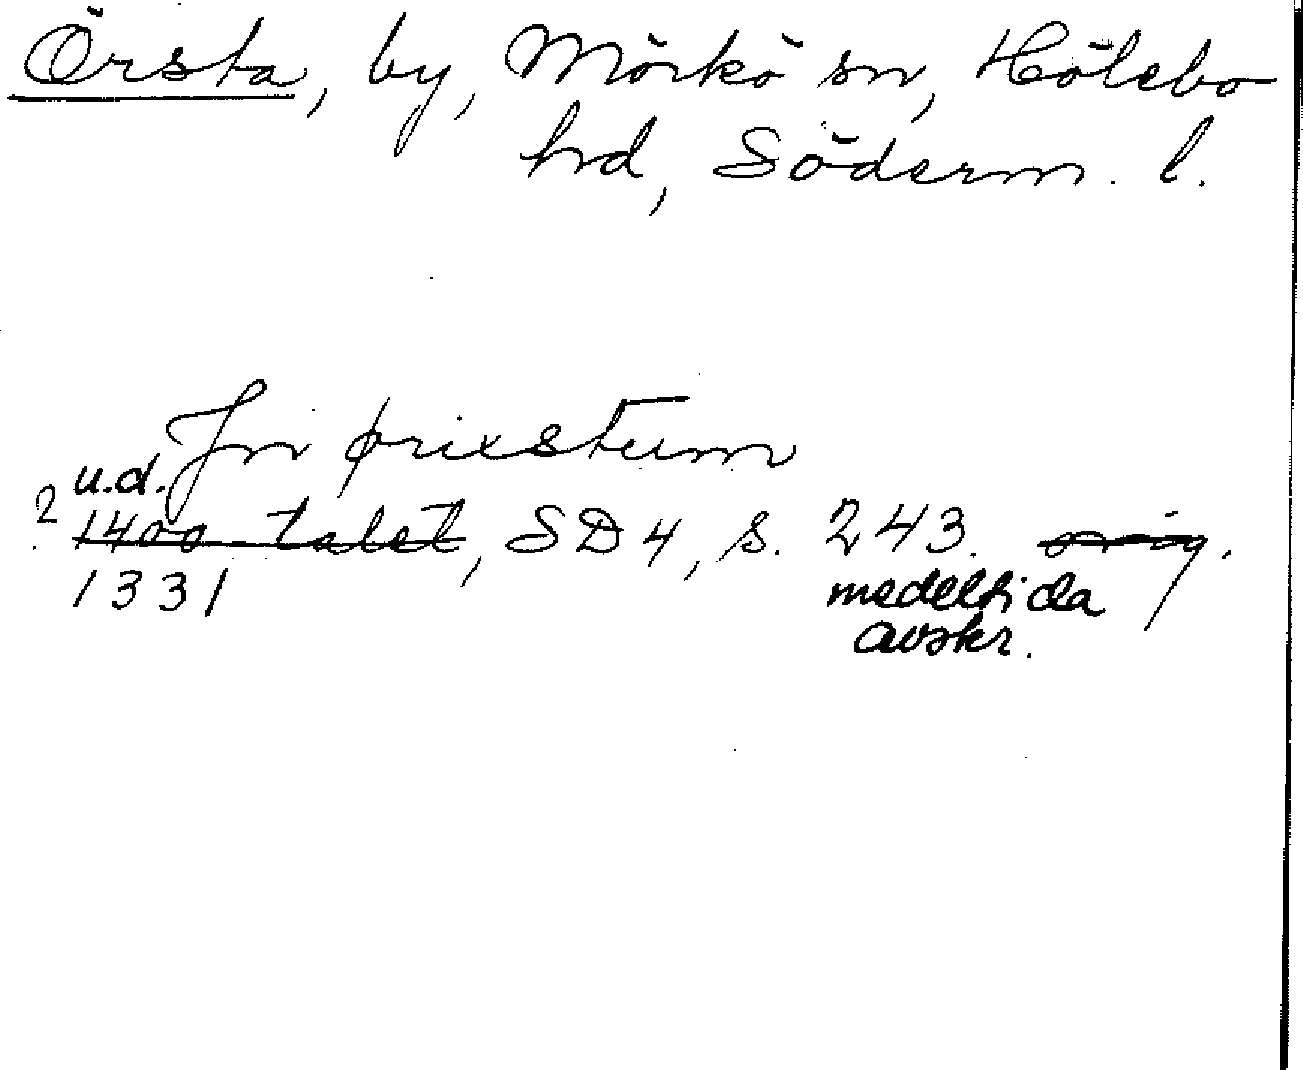 Örsta, by, Mörkö sn, Hölebo
hd, Söderm. l.
Jn ørixstum
u.d.
? 1400-talet, SD 4, s. 243.
1331
medeltida
avskr.